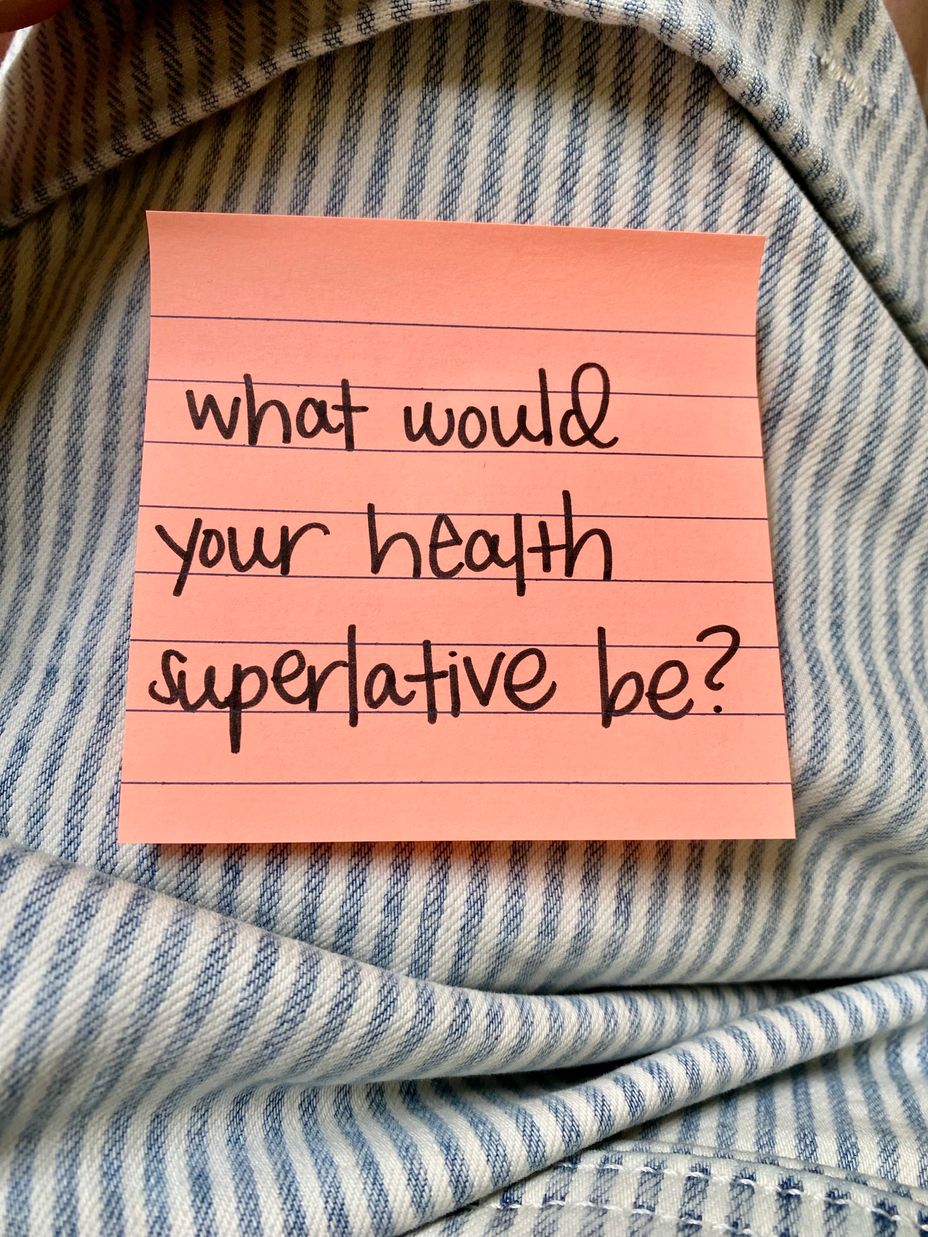 what would
your health
superlative be?